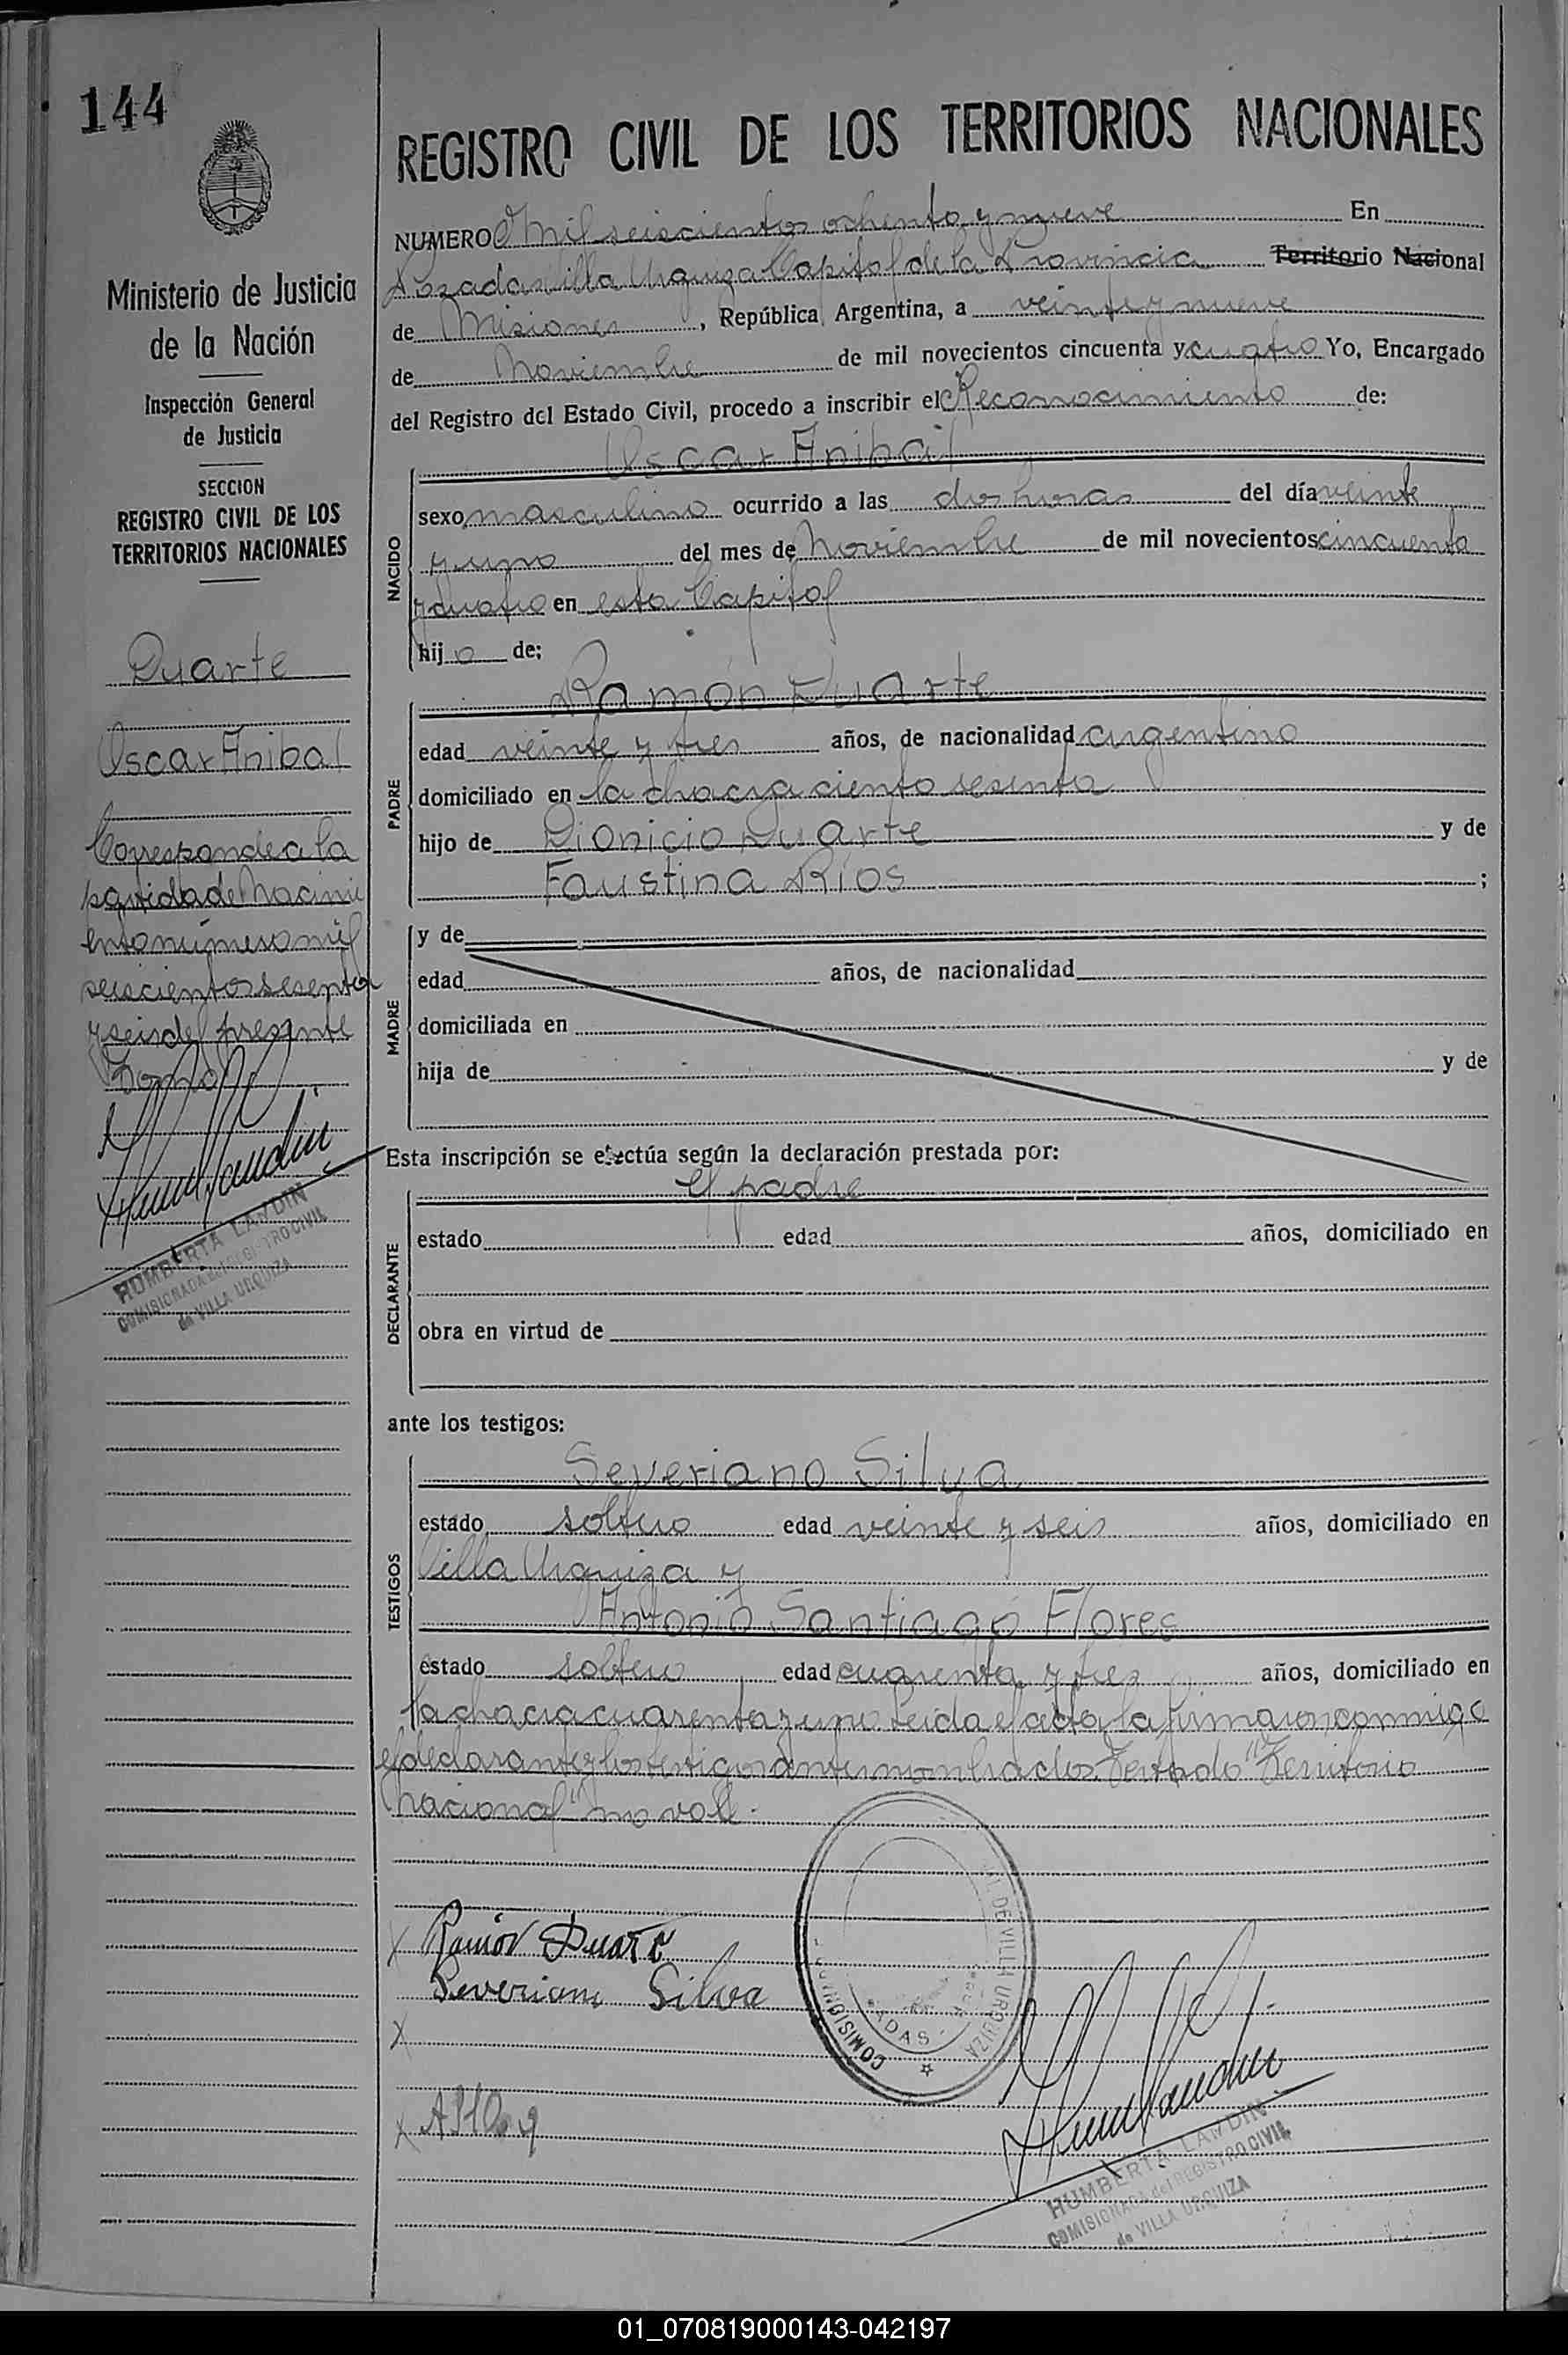 144
REGISTRO CIVIL DE LOS TERRITORIOS NACIONALES
Ministerio de Justicia
de la Nación
Inspección General
de Justicia
SECCION
REGISTRO CIVIL DE LOS
TERRITORIOS NACIONALES
Duarte
Oscar Anibal
Corresponde a la
partida de Nacimi
ento número mil
seiscientos sesenta
y seis del presente
Tomo
HUMBERTA LANDIN
COMISIONADA del REGISTRO CIVIL
de VILLA URQUIZA
NUMERO Mil seiscientos ochenta y nueve En
Posadas Villa Urquiza Capital de la Provincia Territorio Nacional
de Misiones, República Argentina, a veinte y nueve
de Noviembre de mil novecientos cincuenta y cuatro Yo, Encargado
del Registro del Estado Civil, procedo a inscribir el Reconocimiento de:
Oscar Anibal
NACIDO
sexo masculino ocurrido a las dos horas del día veinte
y uno del mes de Noviembre de mil novecientos cincuenta
y cuatro en esta Capital
hijo de;
Ramón Duarte
PADRE
edad veinte y tres años, de nacionalidad argentino
domiciliado en la chacra ciento sesenta
hijo de Dionicio Duarte y de
Faustina Ríos ;
MADRE
y de
edad años, de nacionalidad
domiciliada en
hija de y de
Esta inscripción se efectúa según la declaración prestada por:
el padre
DECLARANTE
estado edad años, domiciliado en
obra en virtud de
ante los testigos:
Severiano Silva
TESTIGOS
estado soltero edad veinte y seis años, domiciliado en
Villa Urquiza y
Antonio Santiago Flores
estado soltero edad cuarenta y tres años, domiciliado en
la chacra cuarenta y uno Leida el acta, la firmaron conmigo
el declarante y los testigos antes nombrados. Testado "Territorio
Nacional" no vale.
x Ramón Duarte
Severiano Silva
x
x
COMISIONADO
DE VILLA URQUIZA
HUMBERTA LANDIN
COMISIONADA del REGISTRO CIVIL
de VILLA URQUIZA
01_070819000143-042197